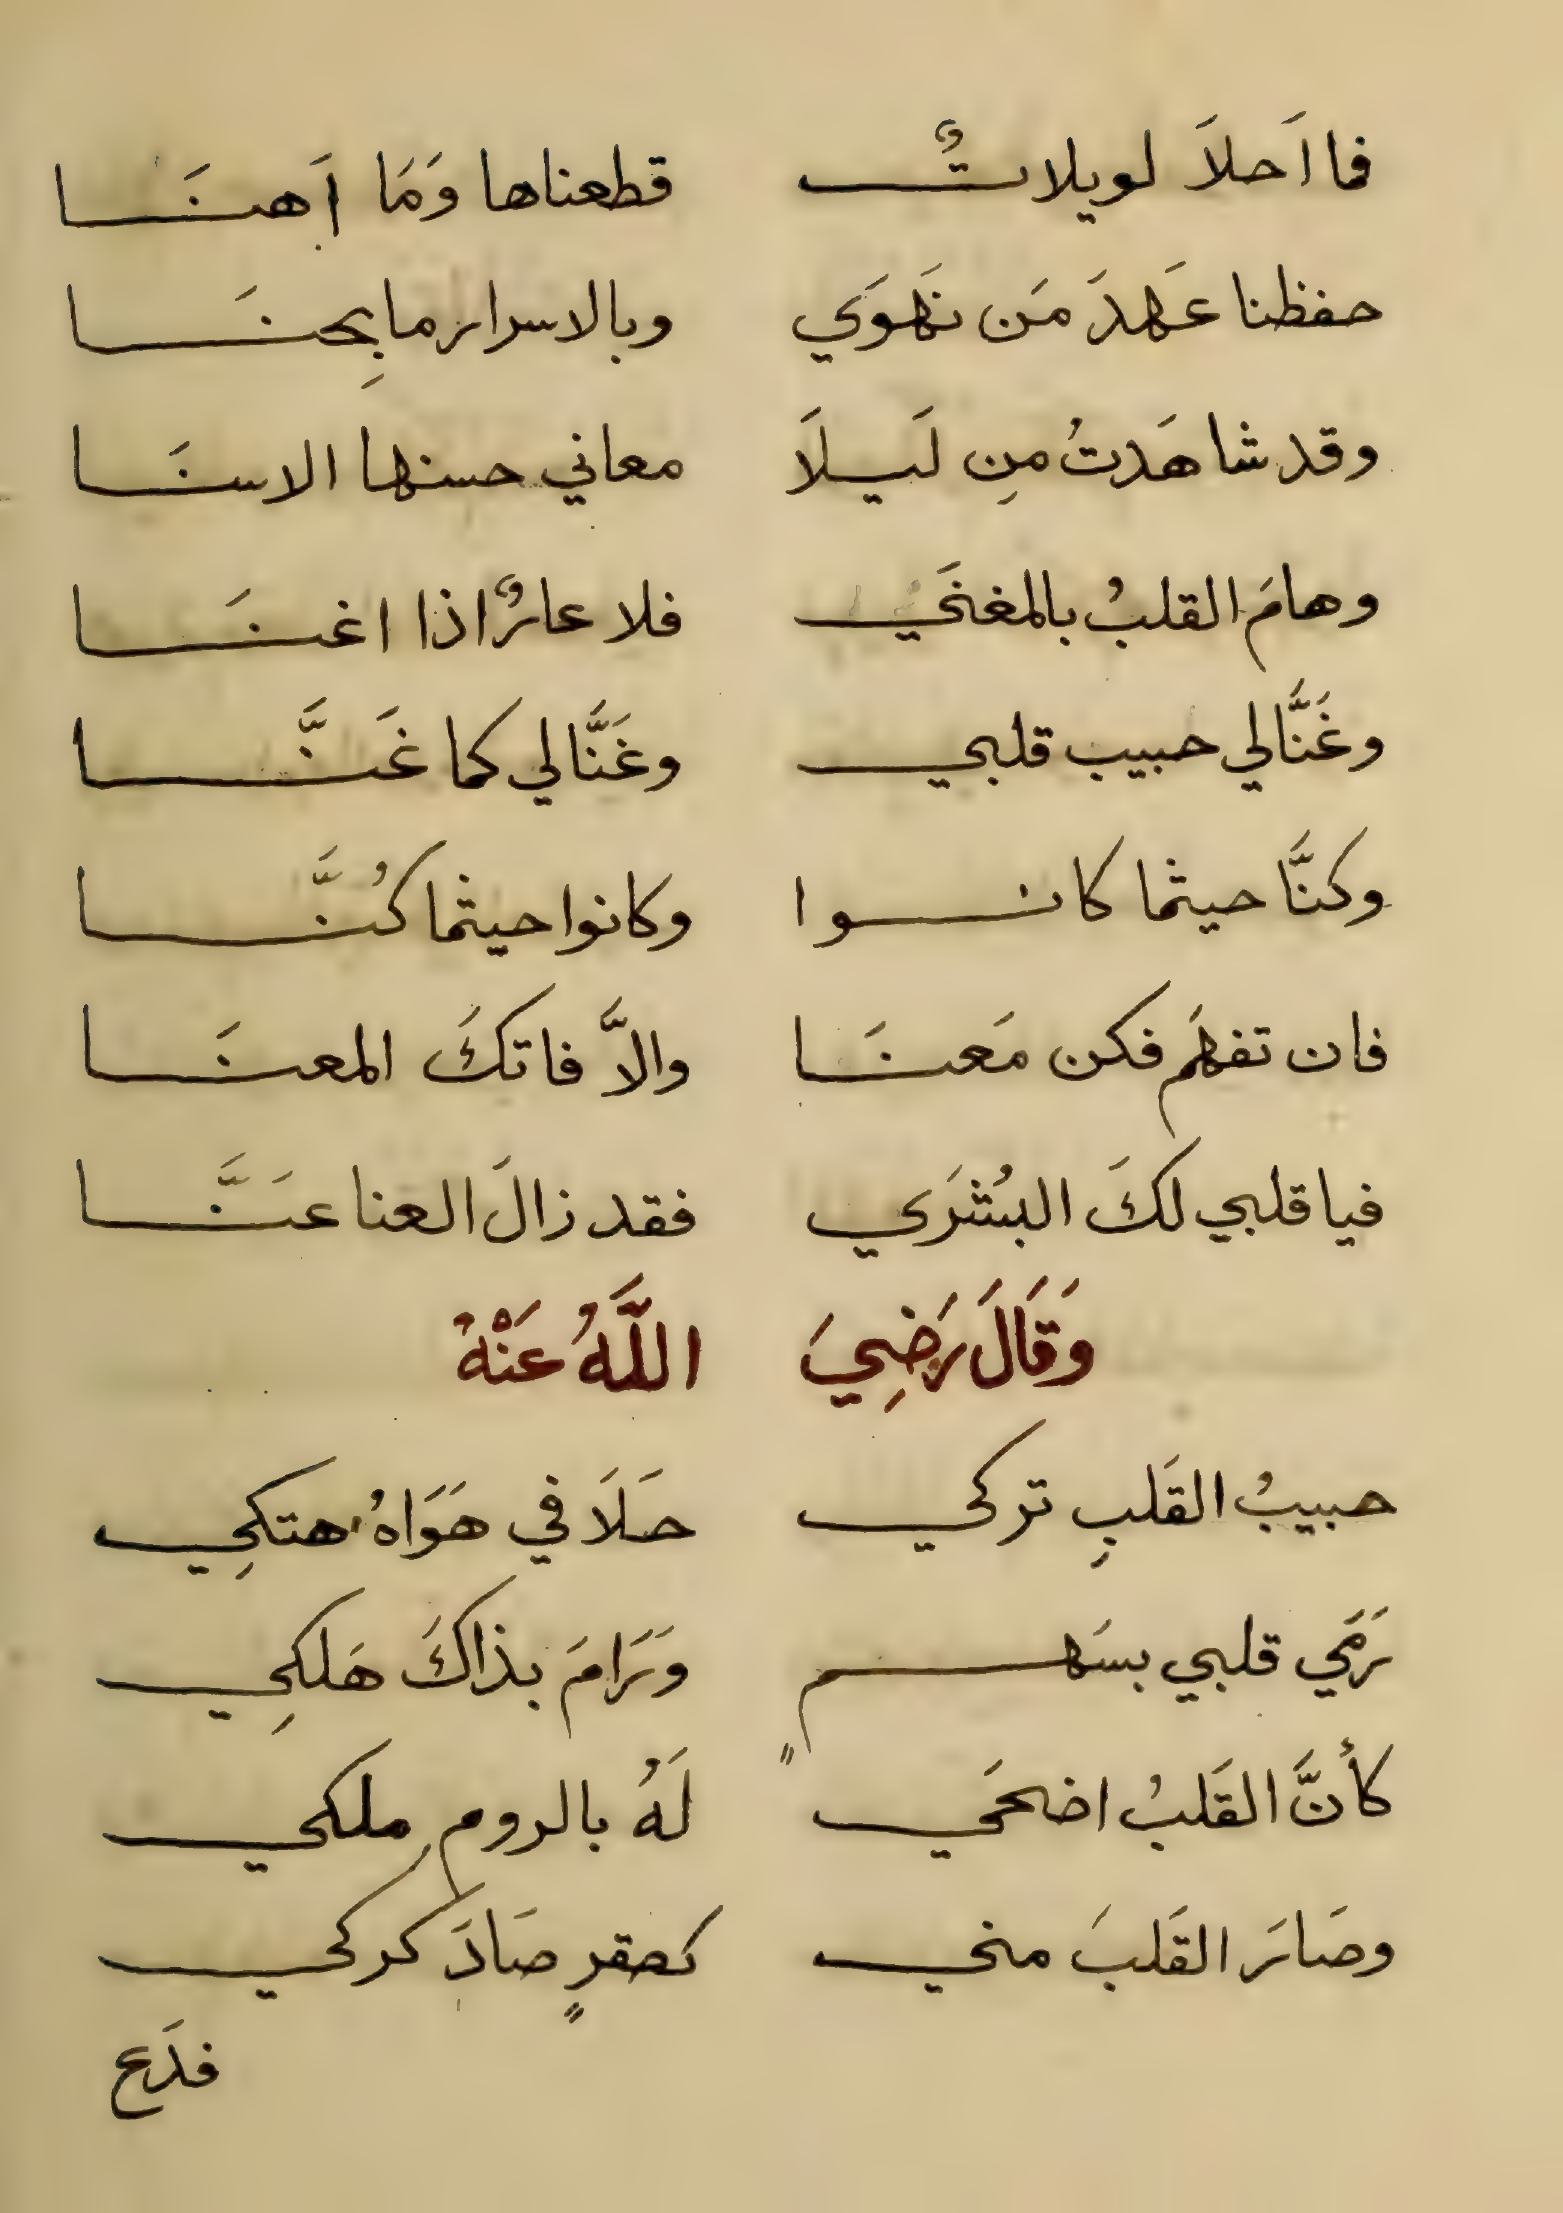 فما اَحلاَ لويلاتٌ قطعناها وَمَا اَهنَا
حفظنا عَهدَ مَن نَهوَي وبالاسرار ما بِحنَا
وقد شاهَدتُ مِن لَيلَا معاني حسنها الاسنَا
وهامَ القلبُ بالمغنَي فلا عارٌ اذا اغنَا
وغَنَّا لي حبيب قلبي وغَنَّا لي كما غَنَّا
وكنَّا حيثما كانوا وكانوا حيثما كُنَّا
فان تفهَم فكن مَعنَا والاَّ فاتكَ المعنَا
فيا قلبي لكَ البُشرَي فقد زالَ العنا عنَّا
وَقَالَ رَضِيَ اللَّهُ عَنْهُ
حبيبُ القَلبِ تركي حَلَا في هَوَاهُ هتكِي
رَمَي قلبي بسَهمٍ وَرَامَ بذاكَ هَلكِي
كأنَّ القَلبُ اضحَي لَهُ بالروم ملكي
وصَارَ القَلبَ مني كصقرٍ صَادَ كركي
فدَع